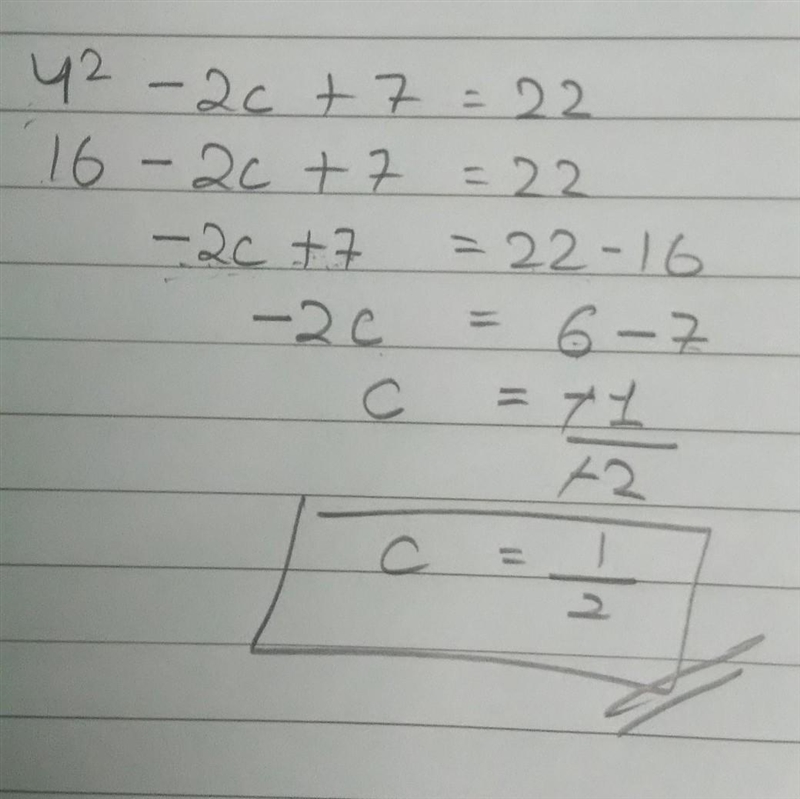 4² - 2c + 7 = 22
16 - 2c + 7 = 22
-2c + 7 = 22 - 16
-2c = 6 - 7
c = -1/-2
c = 1/2